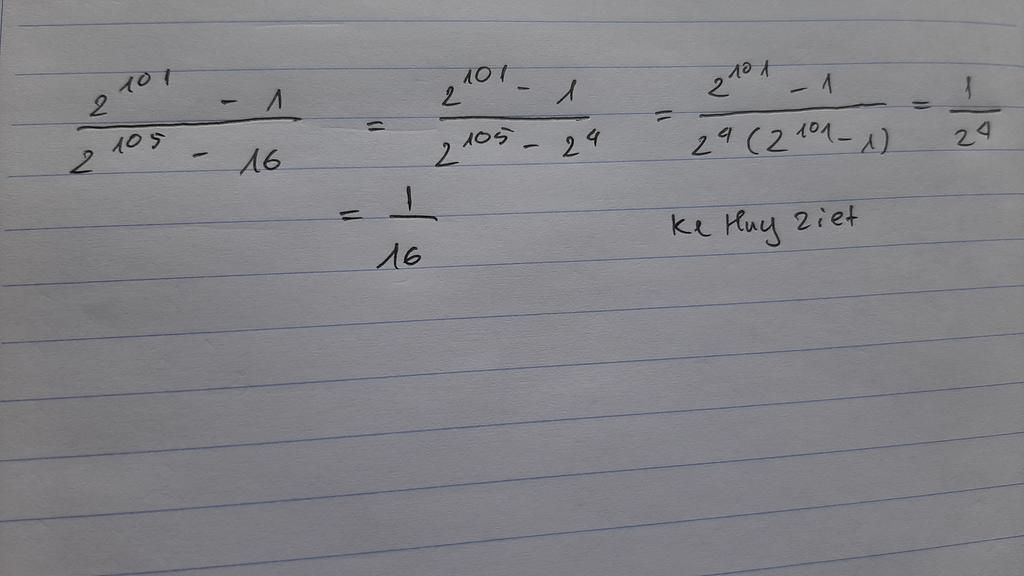 2^101 - 1 / 2^105 - 16 = 2^101 - 1 / 2^105 - 2^4 = 2^101 - 1 / 2^4 (2^101 - 1) = 1 / 2^4
= 1 / 16
Ke Huy Ziet